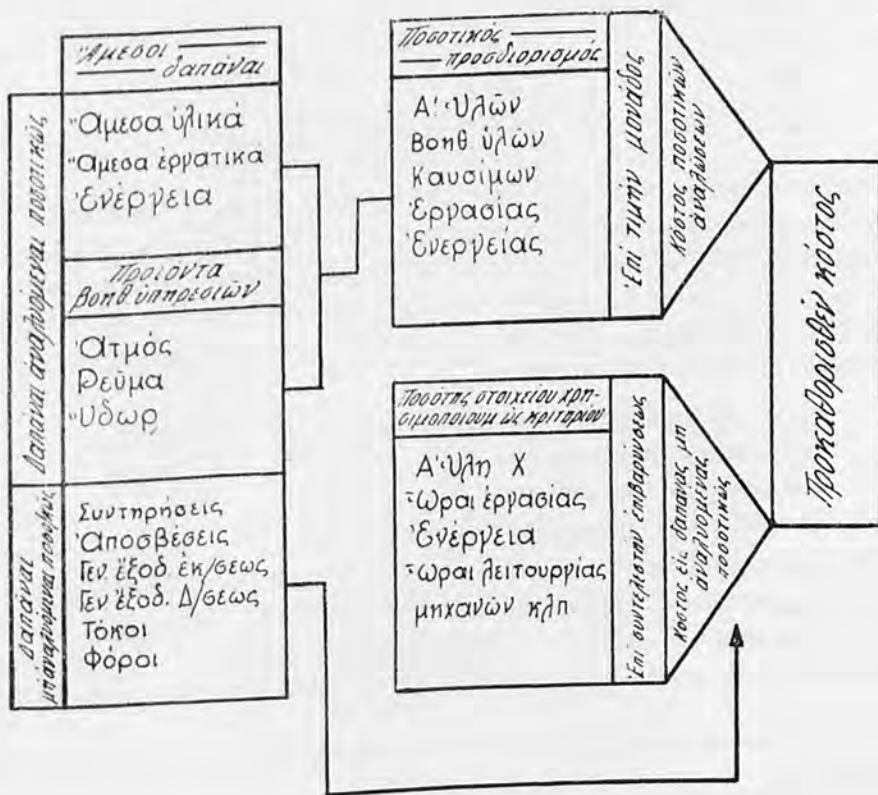 Ἄμεσοι
δαπάναι
Δαπάναι ἀναλυόμεναι ποσοτικῶς
Ἄμεσα ὑλικά
Ἄμεσα ἐργατικά
Ἐνέργεια
Προϊόντα
βοηθ. ὑπηρεσιῶν
Ἀτμός
Ρεῦμα
Ὕδωρ
Δαπάναι
μὴ ἀναλυόμεναι ποσοτικῶς
Συντηρήσεις
Ἀποσβέσεις
Γεν. ἔξοδ. ἐκ/σεως
Γεν. ἔξοδ. Δ/σεως
Τόκοι
Φόροι
Ποσοτικὸς
προσδιορισμός
Α! Ὑλῶν
Βοηθ ὑλῶν
Καυσίμων
Ἐργασίας
Ἐνεργείας
Ἐπὶ τιμὴν μονάδος
Κόστος ποσοτικῶν
ἀναλώσεων
Ποσότης στοιχείου χρη-
σιμοποιουμ ὡς κριτηρίου
Α' Ὕλη Χ
Ὧραι ἐργασίας
Ἐνέργεια
Ὧραι λειτουργίας
μηχανῶν κλπ
Ἐπὶ συντελεστὴν ἐπιβαρύνσεως
Κόστος εἰς δαπάνας μὴ
ἀναλυομένας
ποσοτικῶς
Προκαθορισθὲν κόστος